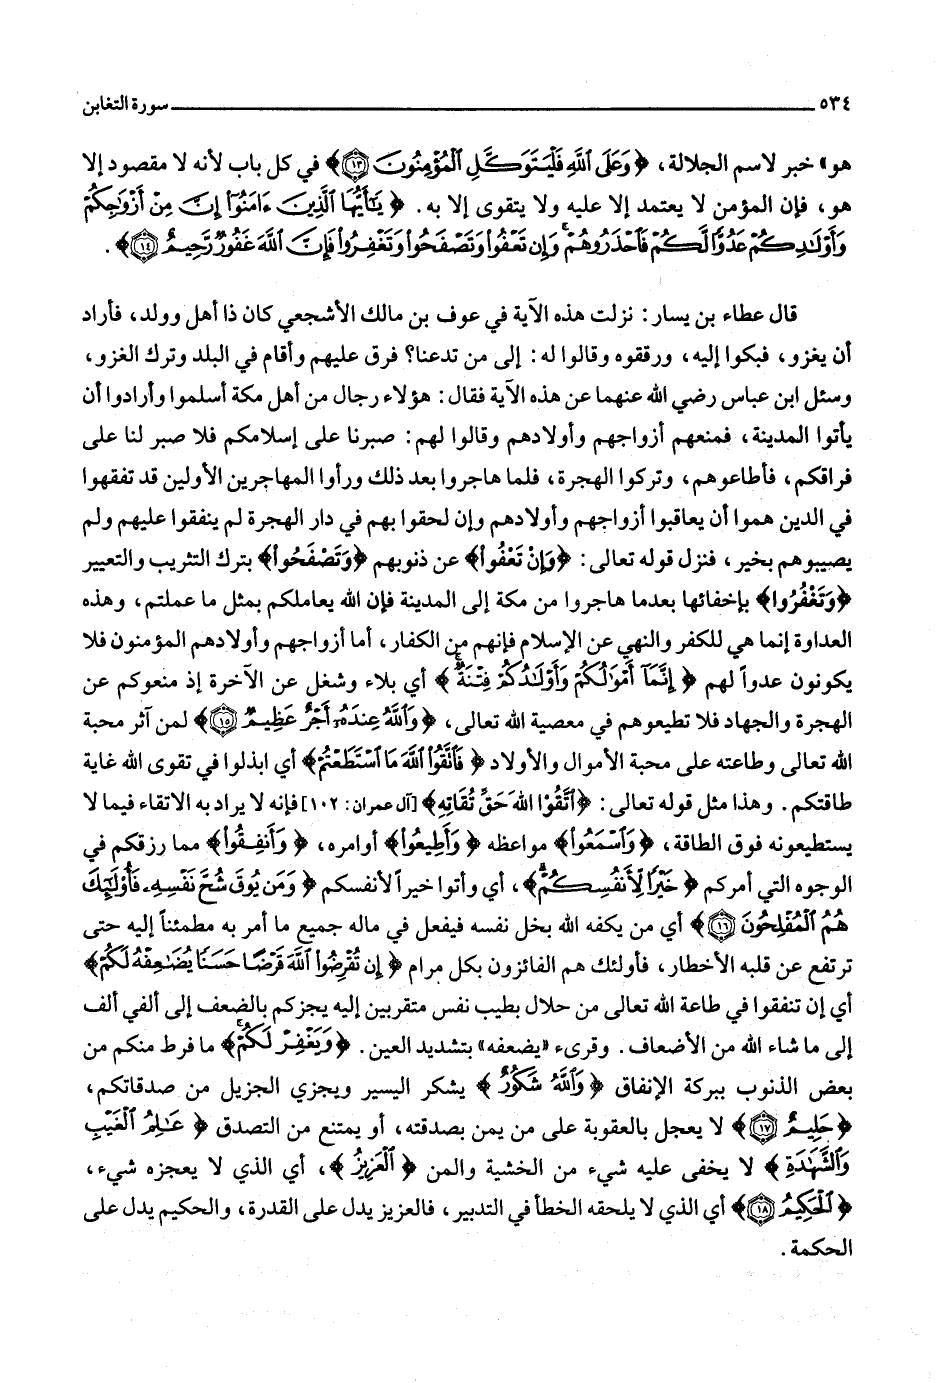 ٥٣٤ سورة التغابن
هو» خبر لاسم الجلالة، ﴿ وَعَلَى اللَّهِ فَلْيَتَوَكَّلِ الْمُؤْمِنُونَ ﴿١٣﴾﴾ في كل باب لأنه لا مقصود إلا
هو، فإن المؤمن لا يعتمد إلا عليه ولا يتقوى إلا به. ﴿ يَٰٓأَيُّهَا الَّذِينَ ءَامَنُوٓا إِنَّ مِنْ أَزْوَٰجِكُمْ
وَأَوْلَٰدِكُمْ عَدُوًّا لَّكُمْ فَٱحْذَرُوهُمْ ۚ وَإِن تَعْفُوا وَتَصْفَحُوا وَتَغْفِرُوا فَإِنَّ اللَّهَ غَفُورٌ رَّحِيمٌ ﴿١٤﴾﴾.
قال عطاء بن يسار: نزلت هذه الآية في عوف بن مالك الأشجعي كان ذا أهل وولد، فأراد
أن يغزو، فبكوا إليه، ورققوه وقالوا له: إلى من تدعنا؟ فرق عليهم وأقام في البلد وترك الغزو،
وسئل ابن عباس رضي الله عنهما عن هذه الآية فقال: هؤلاء رجال من أهل مكة أسلموا وأرادوا أن
يأتوا المدينة، فمنعهم أزواجهم وأولادهم وقالوا لهم: صبرنا على إسلامكم فلا صبر لنا على
فراقكم، فأطاعوهم، وتركوا الهجرة، فلما هاجروا بعد ذلك ورأوا المهاجرين الأولين قد تفقهوا
في الدين هموا أن يعاقبوا أزواجهم وأولادهم وإن لحقوا بهم في دار الهجرة لم ينفقوا عليهم ولم
يصيبوهم بخير، فنزل قوله تعالى: ﴿وَإِنْ تَعْفُوا﴾ عن ذنوبهم ﴿وَتَصْفَحُوا﴾ بترك التثريب والتعيير
﴿وَتَغْفُرُوا﴾ بإخفائها بعدما هاجروا من مكة إلى المدينة فإن الله يعاملكم بمثل ما عملتم، وهذه
العداوة إنما هي للكفر والنهي عن الإسلام فإنهم من الكفار، أما أزواجهم وأولادهم المؤمنون فلا
يكونون عدواً لهم ﴿ إِنَّمَآ أَمْوَٰلُكُمْ وَأَوْلَٰدُكُمْ فِتْنَةٌ ۚ ﴾ أي بلاء وشغل عن الآخرة إذ منعوكم عن
الهجرة والجهاد فلا تطيعوهم في معصية الله تعالى، ﴿وَاللَّهُ عِندَهُۥٓ أَجْرٌ عَظِيمٌ ﴿١٥﴾﴾ لمن آثر محبة
الله تعالى وطاعته على محبة الأموال والأولاد ﴿ فَٱتَّقُوا اللَّهَ مَا ٱسْتَطَعْتُمْ﴾ أي ابذلوا في تقوى الله غاية
طاقتكم. وهذا مثل قوله تعالى: ﴿اتَّقُوا اللَّهَ حَقَّ تُقَاتِهِ﴾ [آل عمران: ١٠٢] فإنه لا يراد به الاتقاء فيما لا
يستطيعونه فوق الطاقة، ﴿وَٱسْمَعُوا﴾ مواعظه ﴿ وَأَطِيعُوا﴾ أوامره، ﴿ وَأَنفِقُوا﴾ مما رزقكم في
الوجوه التي أمركم ﴿ خَيْرًا لِّأَنفُسِكُمْ ۗ﴾، أي وأتوا خيراً لأنفسكم ﴿ وَمَن يُوقَ شُحَّ نَفْسِهِۦ فَأُو۟لَٰٓئِكَ
هُمُ الْمُفْلِحُونَ ﴿١٦﴾﴾ أي من يكفه الله بخل نفسه فيفعل في ماله جميع ما أمر به مطمئناً إليه حتى
ترتفع عن قلبه الأخطار، فأولئك هم الفائزون بكل مرام ﴿ إِن تُقْرِضُوا اللَّهَ قَرْضًا حَسَنًا يُضَٰعِفْهُ لَكُمْ﴾
أي إن تنفقوا في طاعة الله تعالى من حلال بطيب نفس متقربين إليه يجزكم بالضعف إلى ألفي ألف
إلى ما شاء الله من الأضعاف. وقرىء «يضعفه» بتشديد العين. ﴿وَيَغْفِرْ لَكُمْ ۚ﴾ ما فرط منكم من
بعض الذنوب ببركة الإنفاق ﴿ وَاللَّهُ شَكُورٌ ﴾ يشكر اليسير ويجزي الجزيل من صدقاتكم،
﴿حَلِيمٌ ﴿١٧﴾﴾ لا يعجل بالعقوبة على من يمن بصدقته، أو يمتنع من التصدق ﴿ عَٰلِمُ الْغَيْبِ
وَالشَّهَٰدَةِ ﴾ لا يخفى عليه شيء من الخشية والمن ﴿ الْعَزِيزُ ﴾، أي الذي لا يعجزه شيء،
﴿ الْحَكِيمُ ﴿١٨﴾﴾ أي الذي لا يلحقه الخطأ في التدبير، فالعزيز يدل على القدرة، والحكيم يدل على
الحكمة.